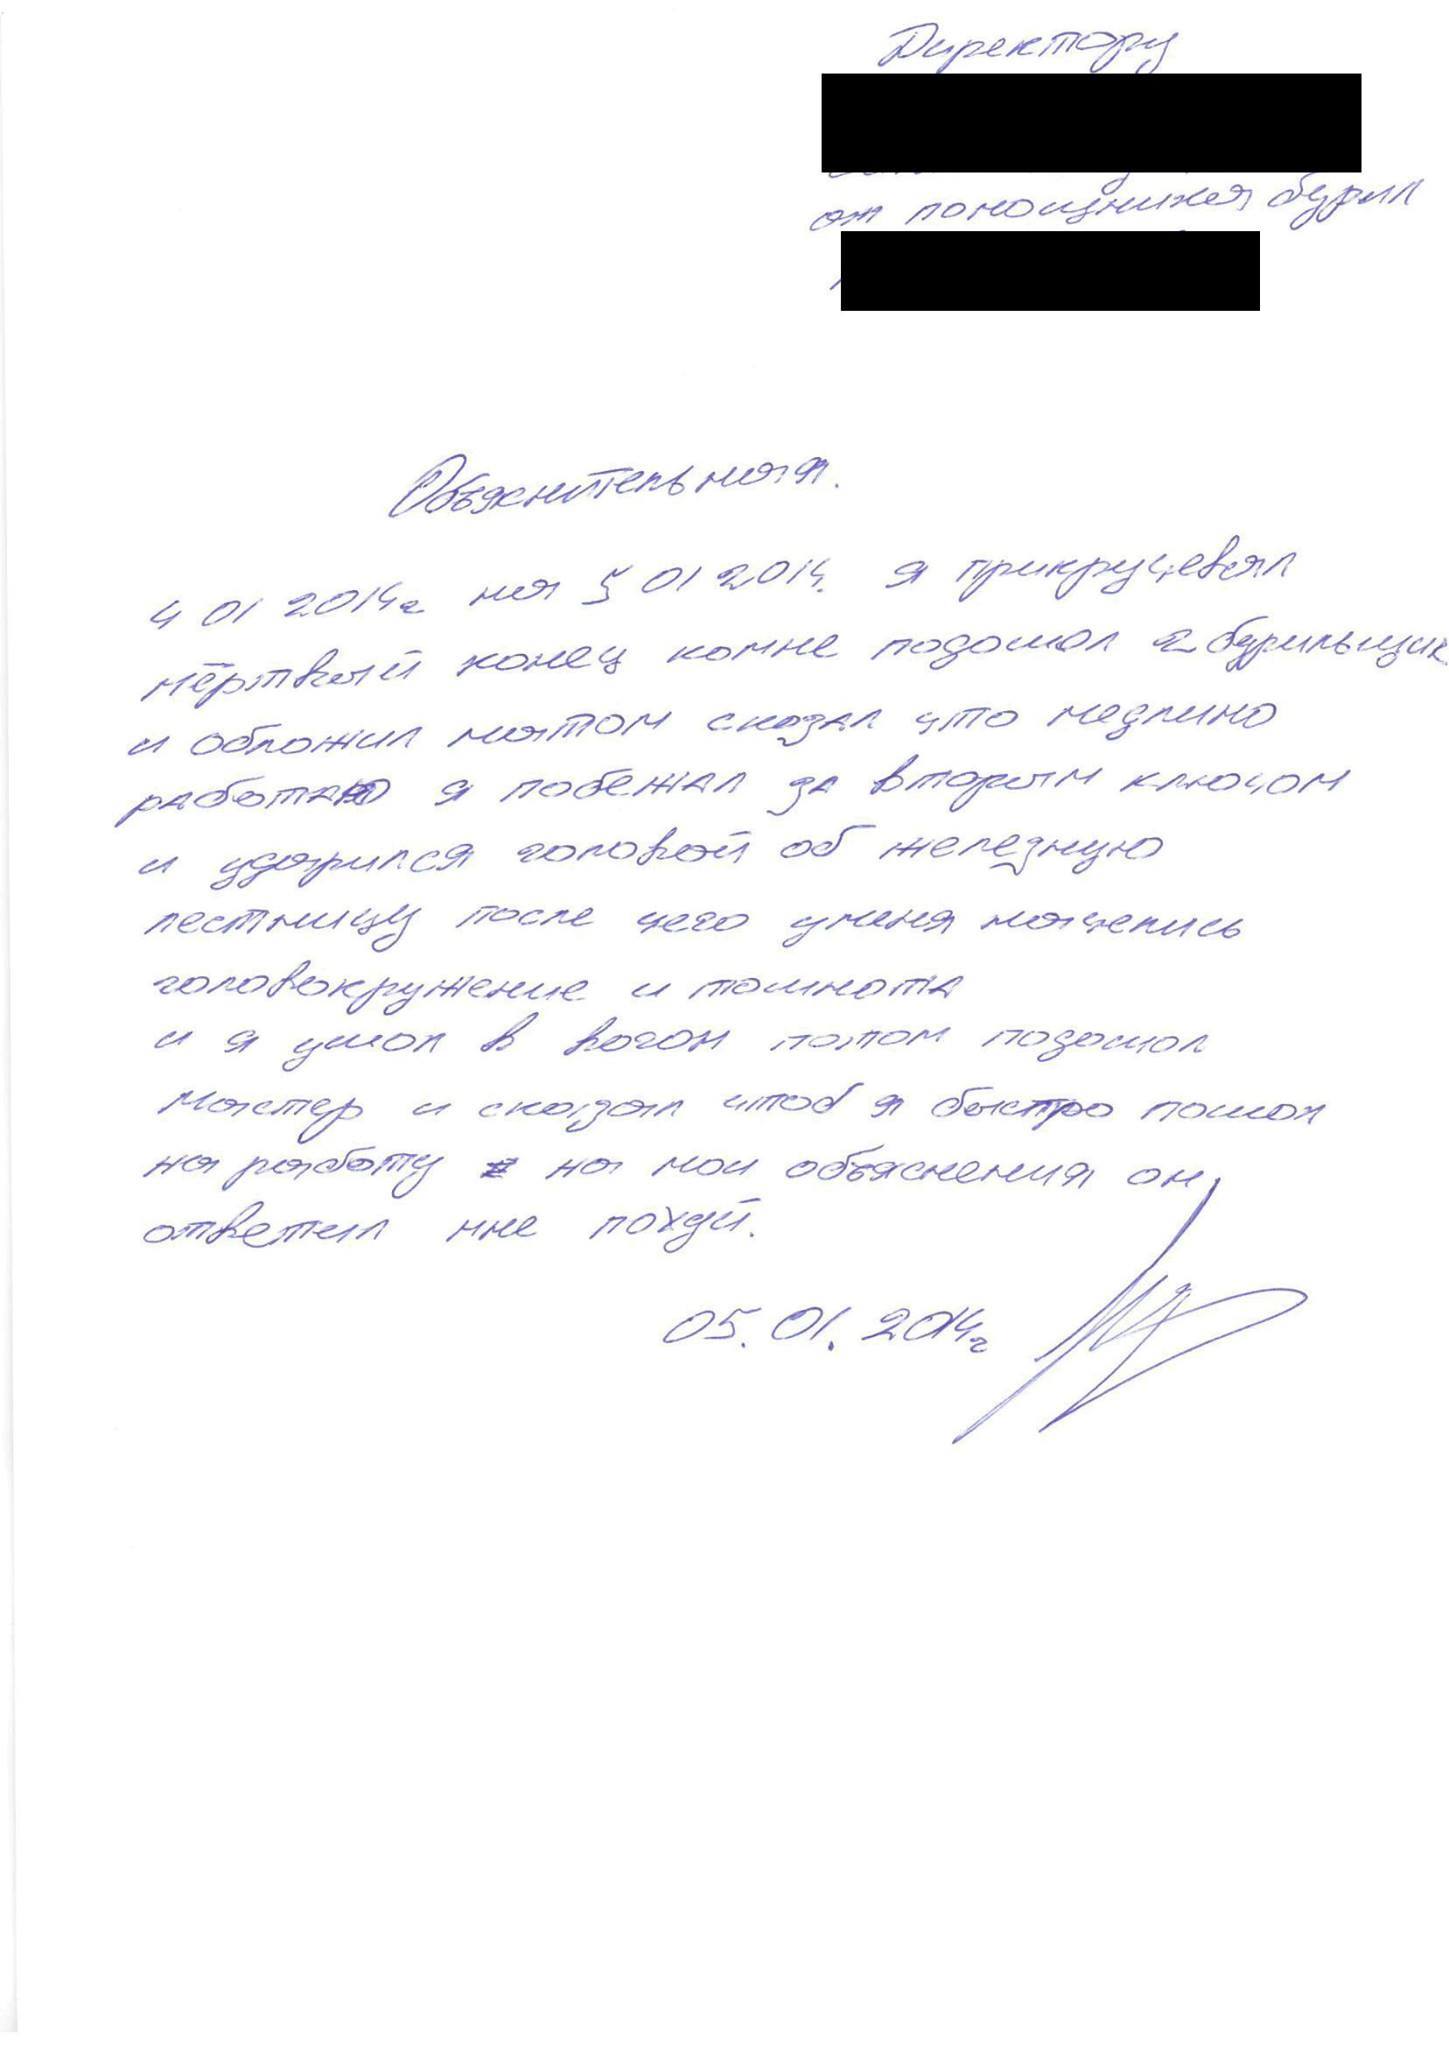 Директору
от помощника бурил
Объяснительная.
4 01 2014г на 5 01 2014. я прикручевал
мёртвый конец комне подошол 2 бурильщик
и обложил матом сказал что медлино
работаю я побежал за вторым ключом
и ударился головой об железную
лестницу после чего уменя начелись
головокружение и тошнота
и я ушол в вогон потом подошол
мастер и сказал чтоб я быстро пошол
на работу на мои объяснения он
ответил мне похуй.
05.01.2014г